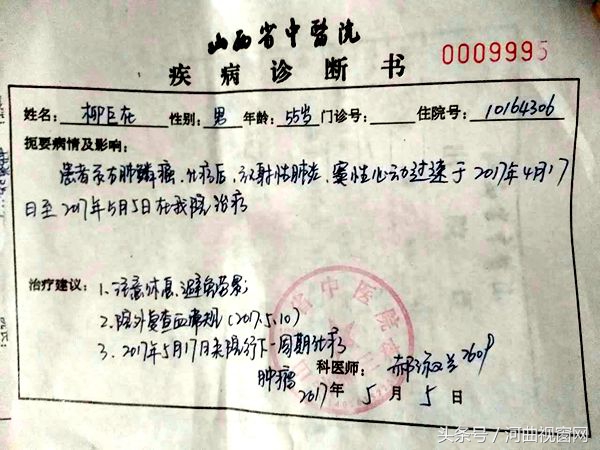 山西省中医院
疾病诊断书 0009995
姓名: 柳巨在 性别: 男 年龄: 55岁 门诊号: 住院号: 10164306
扼要病情及影响:
患者系右肺鳞癌、化疗后、放射性肺炎、窦性心动过速于2017年4月17
日至2017年5月5日在我院治疗
治疗建议: 1.注意休息、避免劳累;
2.院外复查血常规(2017.5.10)
3、2017年5月17日来院行下一周期化疗
肿瘤科医师: 2609
2017年5月5日
中医院
头条号/河曲视窗网